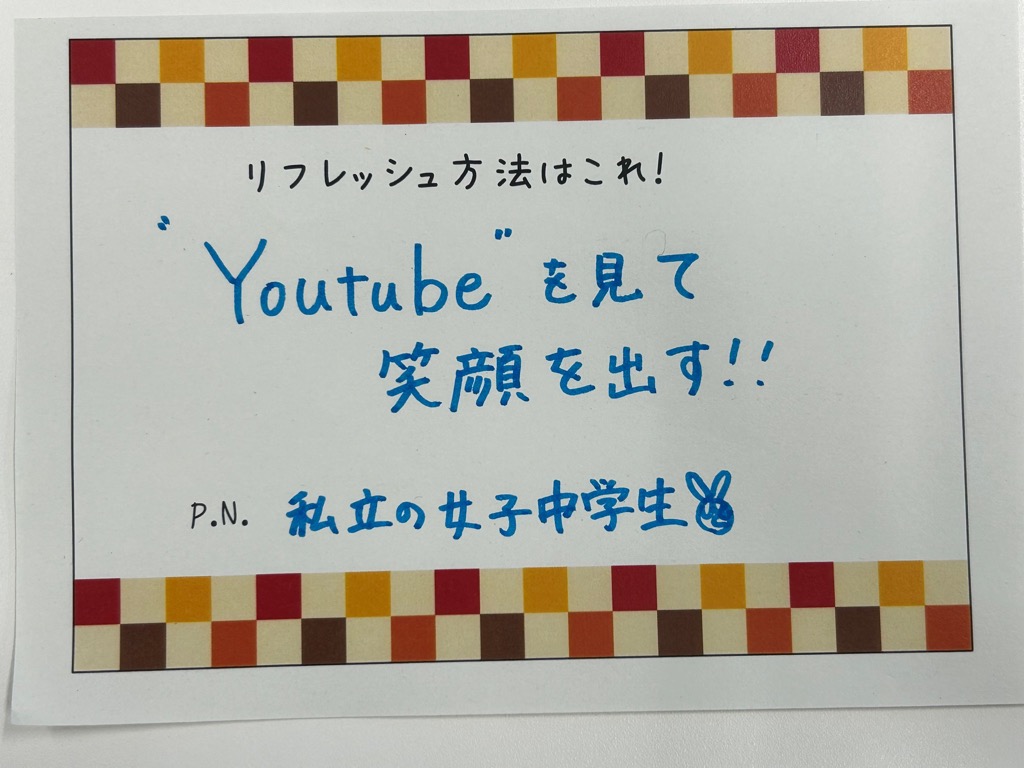 リフレッシュ方法はこれ!
"Youtube"を見て
笑顔を出す!!
P.N. 私立の女子中学生